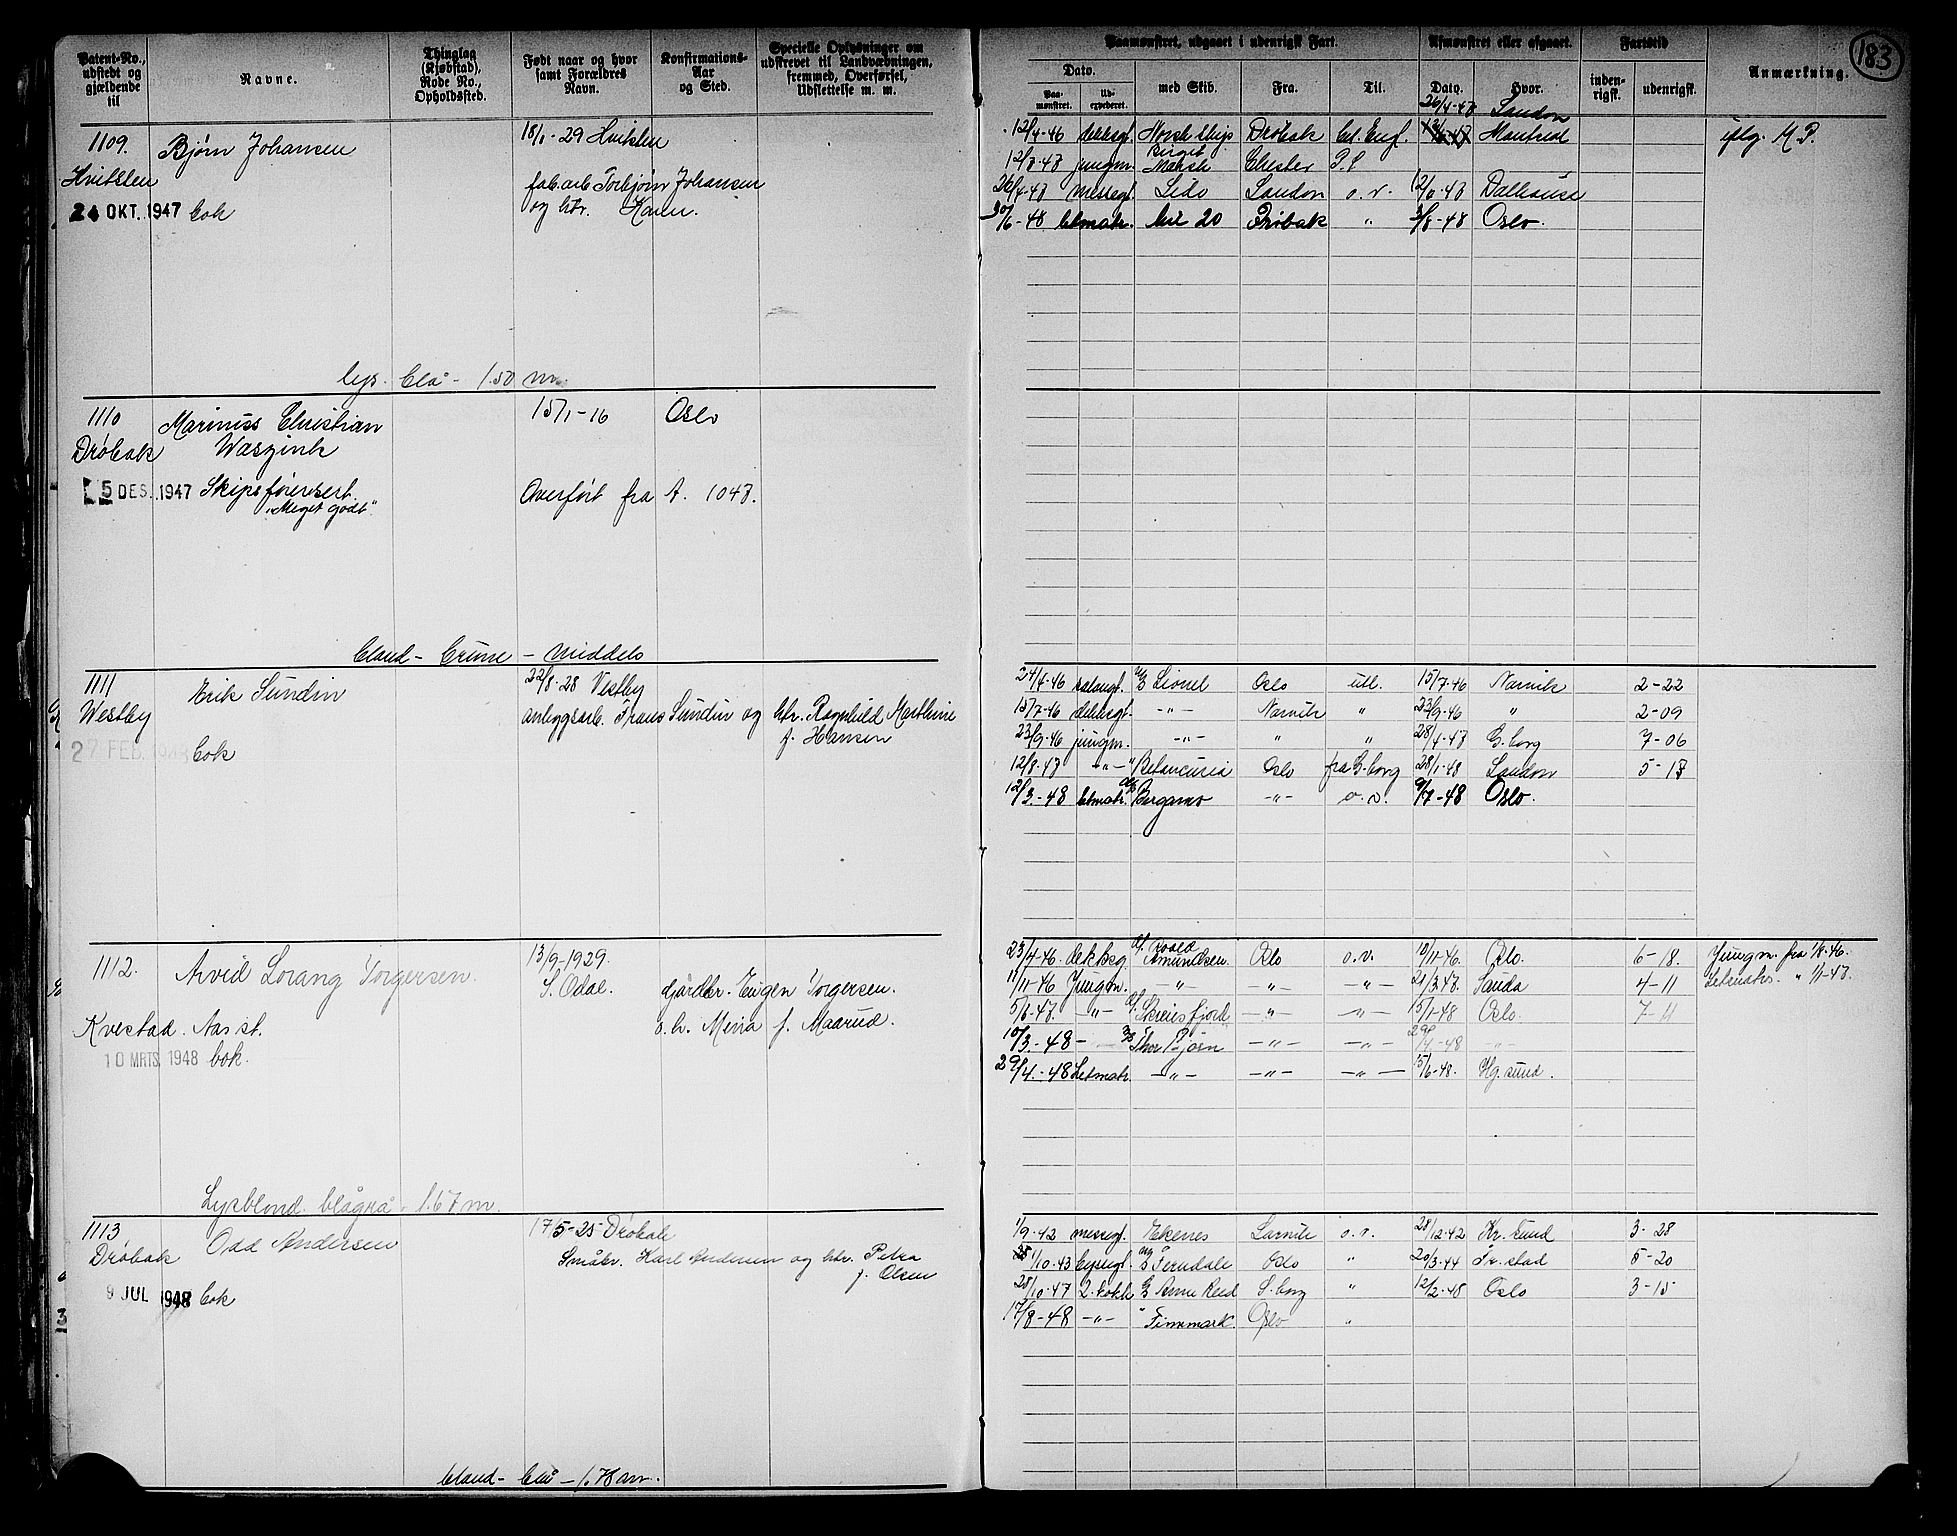 183
Patent-No., udstedt og gjældende til
Navne.
Thinglag (Kjøbstad), Rode No., Opholdssted.
Født naar og hvor samt Forældres Navn.
Konfirmations-Aar og Sted.
Specielle Oplysninger om udskrevet til Landværnepligten, fremmed, Overførsel, Udslettelse m. m.
Paamønstret, udgaaet i udenrigsk Fart.
Dato.
Paamønstret.
med Skib.
Fra.
Til.
Afmønstret eller afgaaet.
Dato.
Hvor.
Fartstid
indenrigsk.
udenrigsk.
Anmærkning.
1109.
Hvitsten
24 OKT. 1947 bok
Bjørn Johansen
18/1-29 Hvitsten
fab.arb. Torbjørn Johansen
og htr. Karen.
lys. blå - 1.50 m.
26/4-47 London
12/4-46 dekksgt. Norsk Drøbak Montreal
12/7-47 jungm. Birgit Mærsk Chester P.S.
26/4-47 messegt. Lido London o.v. Dalhouse
30/6-48 letmatr. Mil 20 Drøbak " 3/8-48 Oslo.
iflg. M.P.
1110
Drøbak
5 DES. 1947
Marinius Christian
Waszink
Skipsførersert.
"Meget godt"
15/1-16 Oslo
Overført fra A. 1047.
bland - brune - middels
1111
Westby
27 FEB. 1948 bok
Erik Sundin
22/8-28 Vestby
anleggsarb. Frans Sundin og htr. Ragnhild Marthine
f. Hansen
24/4-46 Lionel Oslo utl. 15/7-46 Narvik 2-22
15/7-46 dekksgt. -"- Narvik " 23/9-46 " 2-09
23/9-46 jungm. -"- " " 28/4-47 G.borg 7-06
12/8-47 -"- Betancuria Oslo fra G.borg 28/1-48 London 5-17
12/3-48 letmatr. Bergamo -"- o.v. 9/7-48 Oslo.
1112.
Kvestad. Aas st.
10 MRTS. 1948 bok.
Arvid Lorang Torgersen.
13/9-1929.
S. Odal.
Gårdbr. Eugen Torgersen.
o.h. Mina f. Maarud.
Lysblond. blågrå - 1.67 m.
23/4-46. dekksg. Roald Amundsen. Oslo o.v. 10/11-46. Oslo. 6-18. Jungm. fra 1/8-46.
11/11-46 Jungm. -"- -"- -"- 21/3-47. Sauda 4-11 Letmatr. " 1/1-47.
5/6-47. -"- Skiensfjord -"- -"- 15/1-48 Oslo. 7-11
10/3.-48 - Thor Bjørn -"- -"- 29/4-48 -"-
29/4.-48 Letmatr. -"- -"- -"- 15/6-48. Hg.sund.
1113
Drøbak
9 JUL 1948 bok
Odd Andersen
17/5-25 Drøbak
Småbr. Karl Andersen og htr. Petra
f. Olsen
bland - blå - 1.78 m.
1/9-42 messegt. Ekenes Larvik o.v. 28/12-42 Kr.sund 3-28
1/10-43 Ferndale Oslo " 20/3-44 Fr.stad 5-20
28/10-47 2. kokk Anne Reed S.borg " 12/2-48 Oslo 3-15
17/8-48 -"- " Finnmark. Oslo "